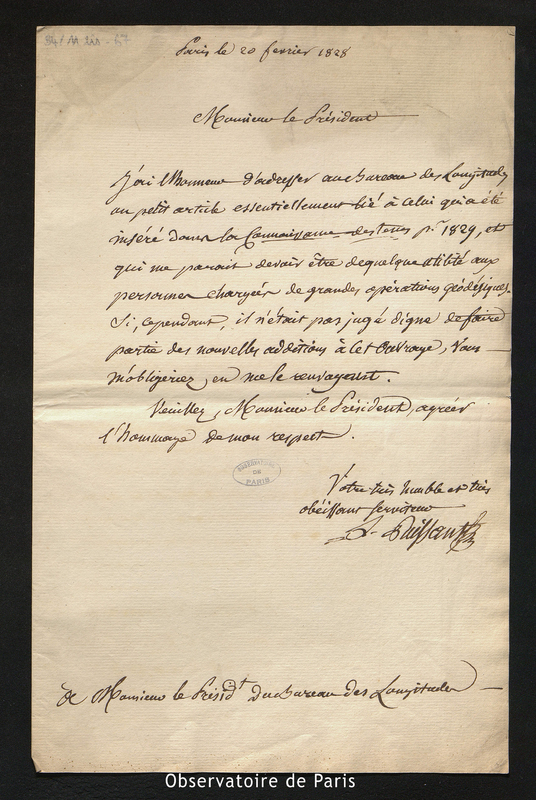 Paris le 20 fevrier 1828
Monsieur le Président
J'ai l'honneur d'adresser au bureau des Longitudes
un petit article essentiellement lié à celui qui a été
inséré dans la Connaissance des tems pr. 1829, et
qui me parait devoir être de quelque utilité aux
personnes chargées de grandes opérations géodésiques.
Si, cependant, il n'était pas jugé digne de faire
partie des nouvelles additions à cet Ouvrage, Vous
m'obligeriez en me le renvoyant.
Veuillez, Monsieur le Président, agréer
l'hommage de mon respect.
Votre très humble et très
obéissant serviteur
L. Puissant
OBSERVATOIRE
DE
PARIS
à Monsieur le Présidt du bureau des Longitudes
Observatoire de Paris